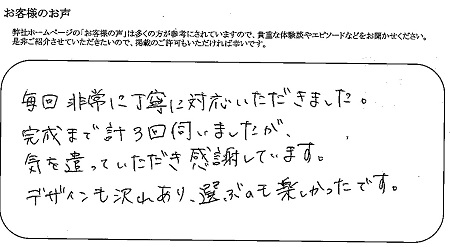 お客様のお声
弊社ホームページの「お客様の声」は多くの方が参考にされていますので、貴重な体験談やエピソードなどをお聞かせください。
是非ご紹介させていただきたいので、掲載のご許可もいただければ幸いです。
毎回非常に丁寧に対応いただきました。
完成まで計3回伺いましたが、
気を遣っていただき感謝しています。
デザインも沢山あり、選ぶのも楽しかったです。